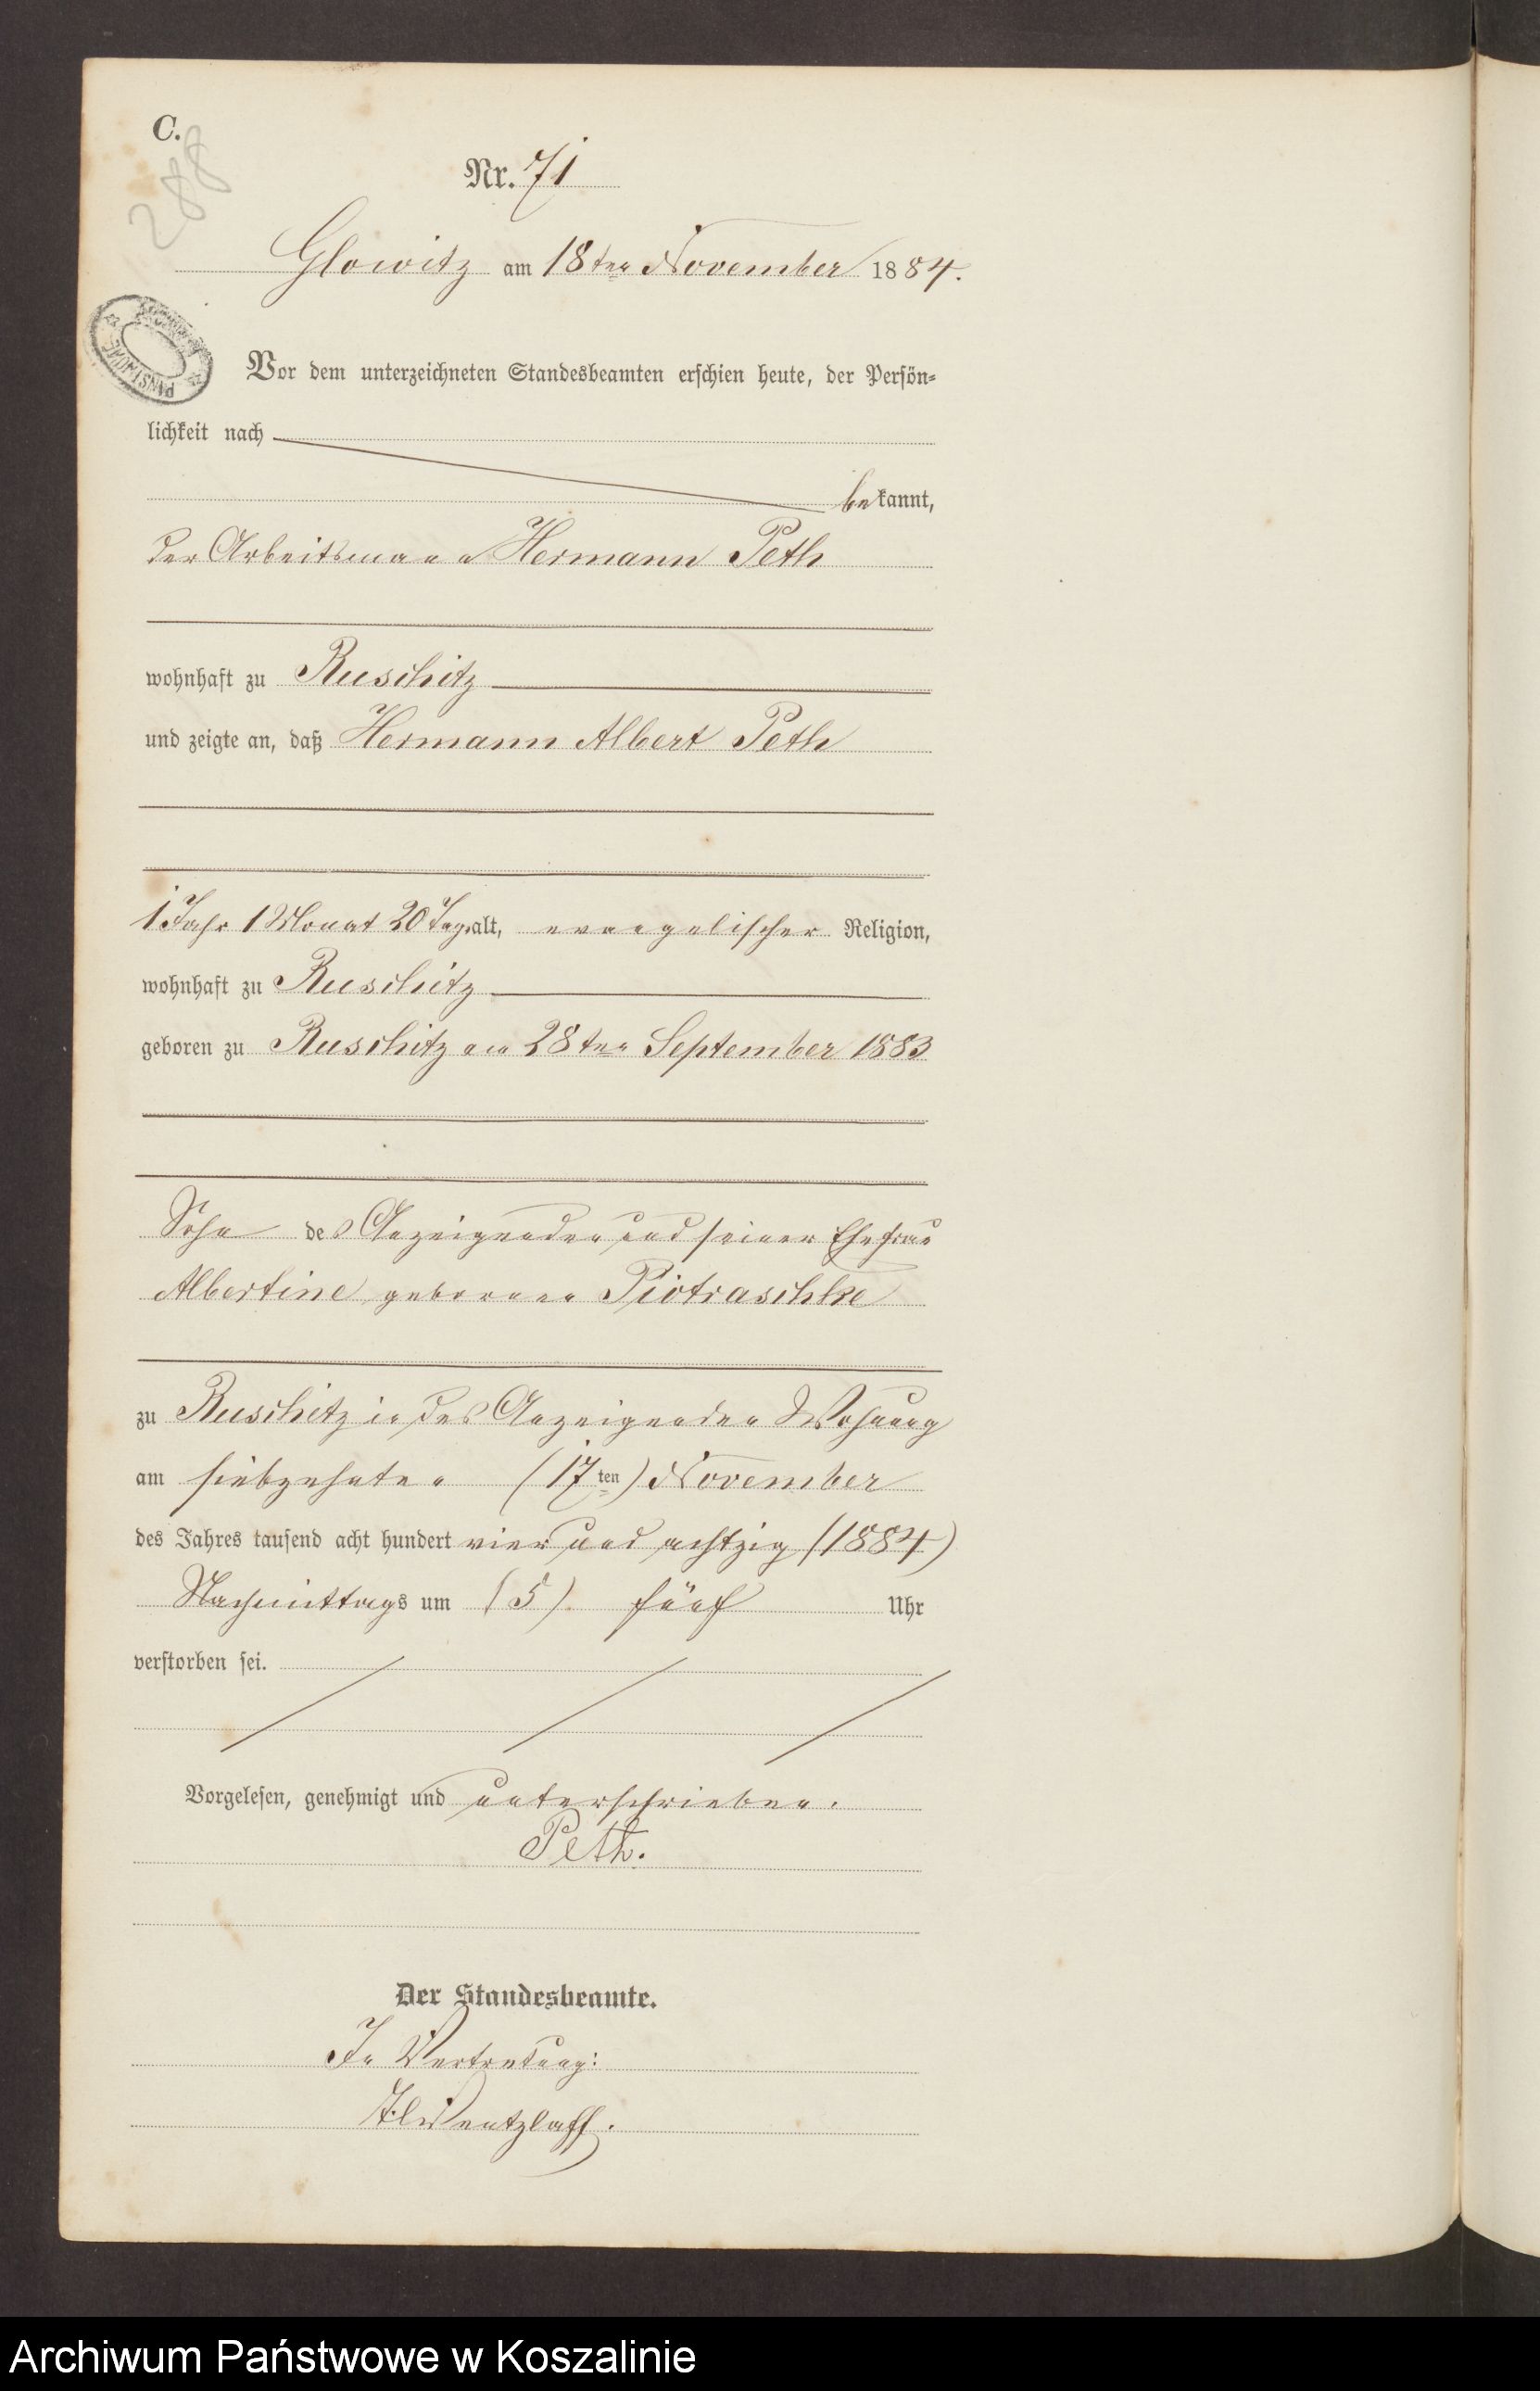 C.
288
Nr. 71
Glowitz am 18ten November 1884.
Vor dem unterzeichneten Standesbeamten erschien heute, der Persön-
lichkeit nach
bekannt,
der Arbeitsmann Hermann Peth
wohnhaft zu Ruschitz
und zeigte an, daß Hermann Albert Peth
1 Jahr 1 Monat 20 Tage alt, evangelischer Religion,
wohnhaft zu Ruschitz
geboren zu Ruschitz am 28ten September 1883
Sohn des Anzeigenden und seiner Ehefrau
Albertine geborenen Piotraschke
zu Ruschitz in des Anzeigenden Wohnung
am siebzehnten (17ten) November
des Jahres tausend acht hundert vier und achtzig (1884)
Nachmittags um (5) fünf Uhr
verstorben sei.
Vorgelesen, genehmigt und unterschrieben.
Peth.
Der Standesbeamte.
In Vertretung:
Wentzlaff.
Archiwum Państwowe w Koszalinie